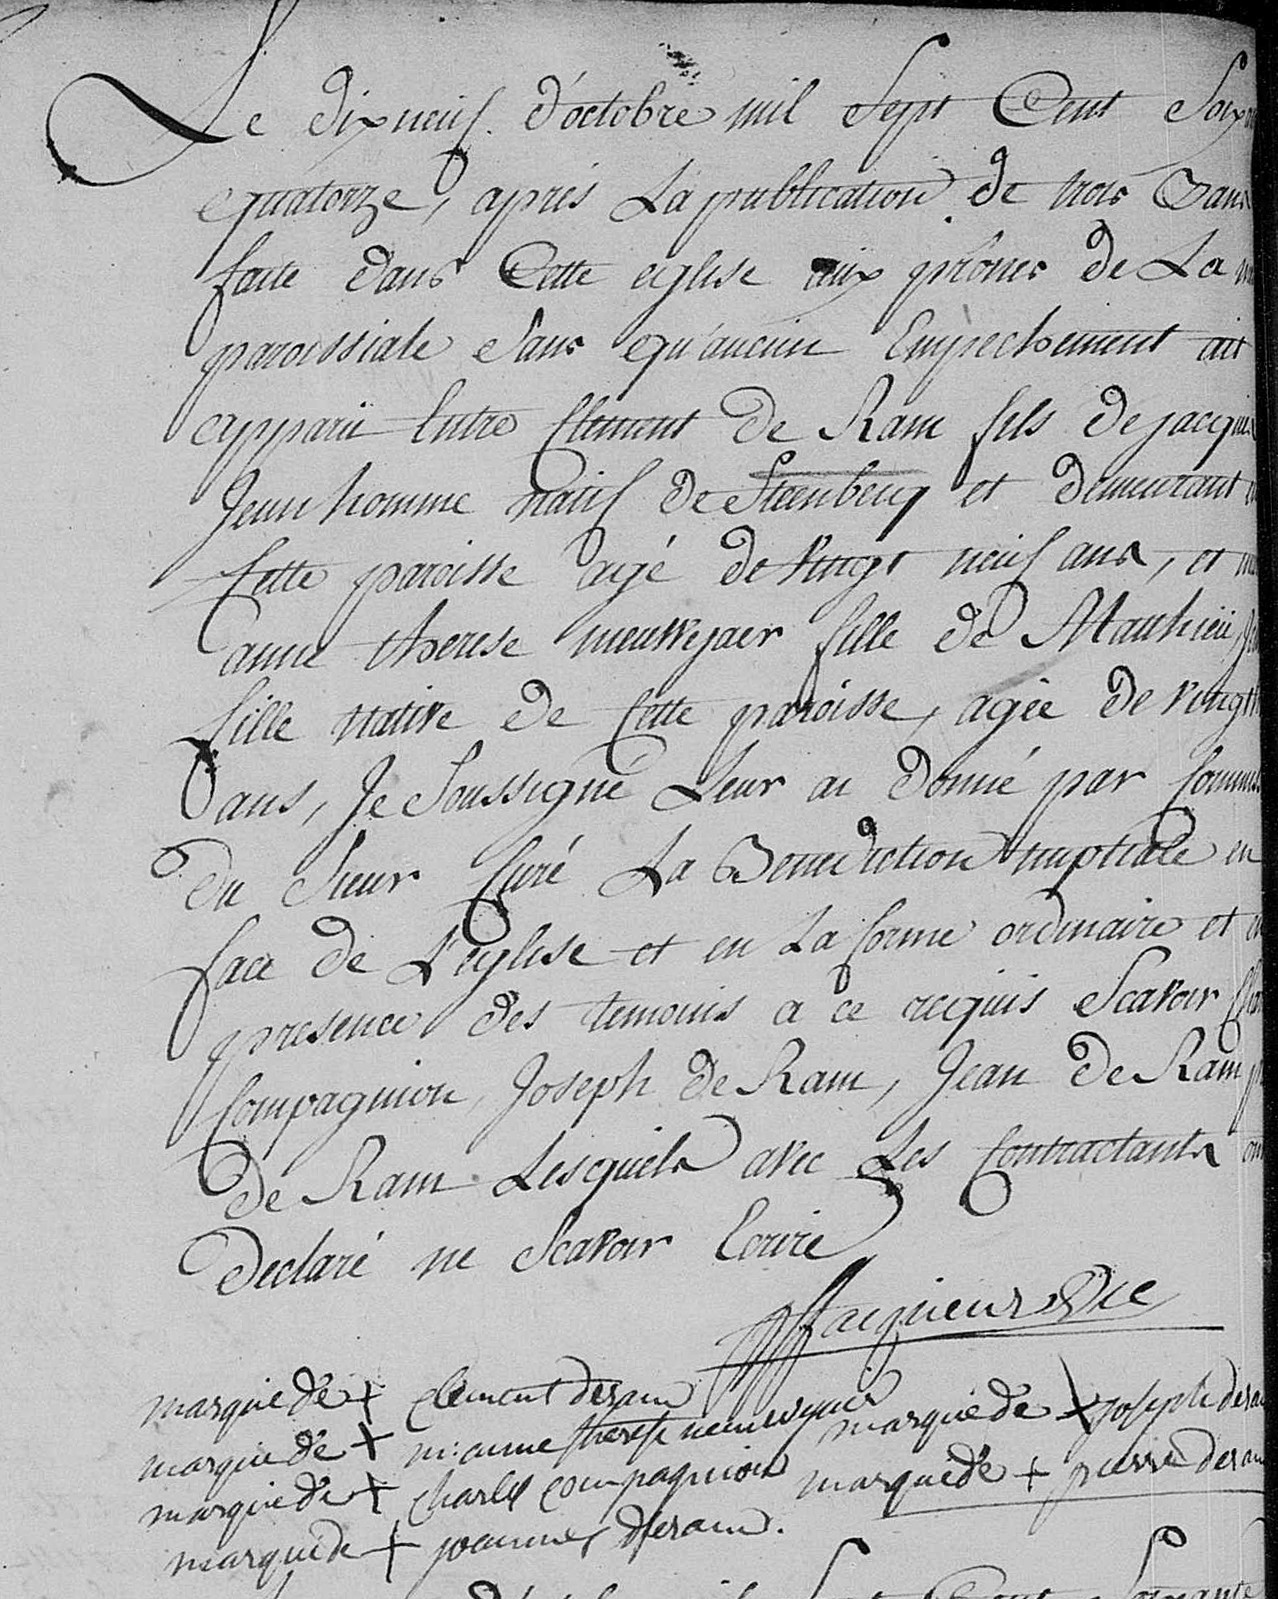 Le dixneuf d'octobre mil Sept Cent Soix
quatorze, aprés La publication de trois Bans
faite dans Cette eglise aux prônes de La
paroissiale Sans qu'aucun Empechement ait
apparû Entre Clement de Ram fils de jacques
Jeun homme natif de Steenbecq et demeurant
Cette paroisse agé de vingt neuf ans, et
anne therese meuwejaer fille de Mathieu
fille native de Cette paroisse, agée de vingt
ans, Je Soussigné Leur ai donné par Commis
du Sieur Curé La Benediction nuptiale en
face de L'eglise et en La forme ordinaire et en
presence des temoins a ce requis Scavoir
Compagnion, Joseph de Ram, Jean de Ram
de Ram Lesquels avec Les Contractants ont
Declaré ne Scavoir Ecrire
Vice
marque de + clement deram
marque de + m: anne therese marque de + joseph deram
marque de + charle compagnion marque de + pierre deram
marque de + joannes deram.
Sept Cent Soixante